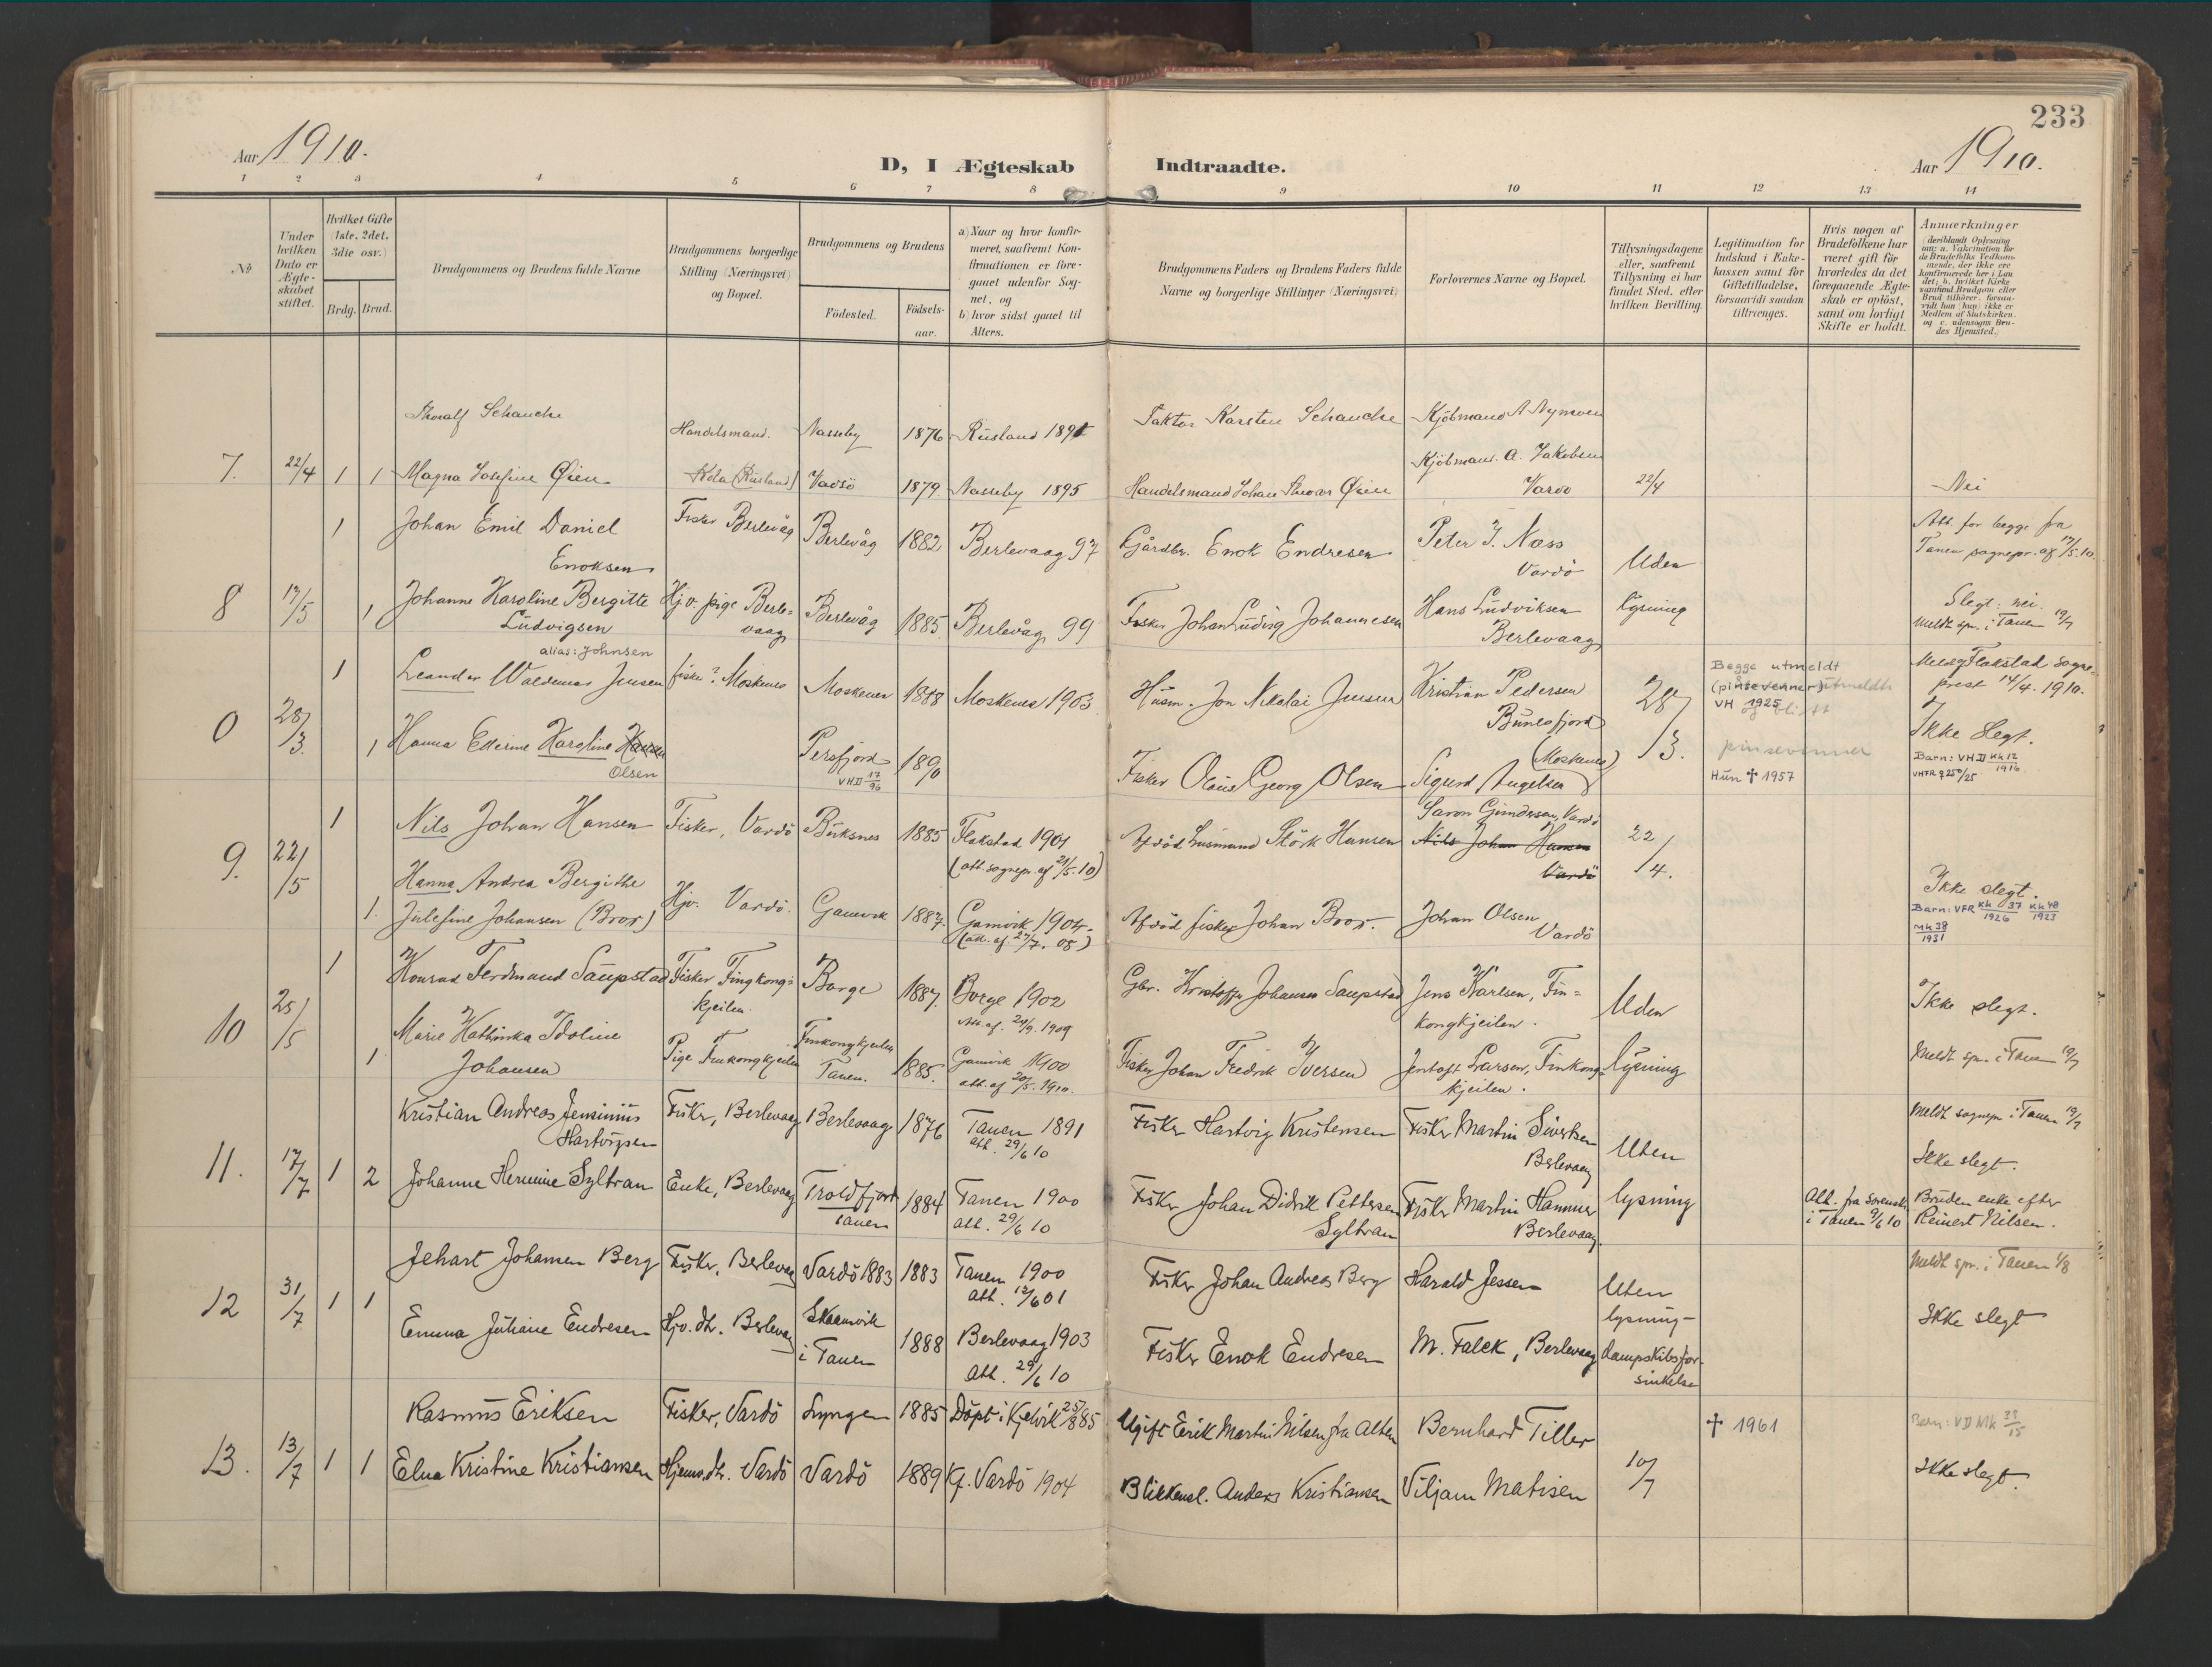 233
Aar 1910.
D, I Ægteskab Indtraadte.
Aar 1910.
1 2 3 4 5 6 7 8 9 10 11 12 13 14
No
Under hvilken Dato er Ægteskabet stiftet.
Hvilket Gifte (1ste, 2det, 3die osv.)
Brdg. Brud.
Brudgommens og Brudens fulde Navne
Brudgommens borgerlige Stilling (Næringsvei) og Bopæl.
Brudgommens og Brudens
Fødested.
Fødsels-aar.
a) Naar og hvor konfirmeret, saafremt Konfirmationen er foregaaet udenfor Sognet, og
b) hvor sidst gaaet til Alters.
Brudgommens Faders og Brudens Faders fulde Navne og borgerlige Stillinger (Næringsvei)
Forlovernes Navne og Bopæl.
Tillysningsdagene eller, saafremt Tillysning ei har fundet Sted, efter hvilken Bevilling.
Legitimation for Indskud i Enkekassen samt for Giftetilladelse, forsaavidt saadan tiltrænges.
Hvis nogen af Brudefolkene har været gift før hvorledes da det foregaaende Ægteskab er opløst, samt om lovligt Skifte er holdt.
Anmærkninger
(deriblandt Oplysning om: a. Vakcination for de Brudefolks Vedkommende, der ikke ere konfirmerede her i Landet; b. hvilket Kirkesamfund Brudgom eller Brud tilhører, forsaavidt han (hun) ikke er Medlem af Statskirken, og c. udensogns Brudes Hjemsted.)
Thoralf Schanche Handelsmand. Nasseby 1876 Rusland 1891 Faktor Karsten Schanche Kjöbmand A Nymoen
7. 22/4 1 1 Magna Josefine Øien Kola (Rusland) Vadsö 1879 Nasseby 1895 Handelsmand Johan Øien Kjöbmand. A. Jakobsen Vardö 22/4 Nei
1 Johan Emil Daniel Enoksen Fisker Berlevåg Berlevåg 1882 Berlevaag 97 Gårdbr. Enok Endresen Peter J. Næss Vardö Uden Att. for begge fra Tanen sognepr. af 17/5.10.
8 17/5 1 Johanne Karoline Bergitte Ludvigsen Hjv. pige Berlevaag Berlevåg 1885 Berlevåg 99 Fisker Johan Ludvig Johannesen Hans Ludviksen Berlevaag lysning Slegt: nei. Meldt spr. i Tanen 19/7
alias: Johnsen
1 Leander Waldemar Jensen fisker? Moskenes Moskenes 1888 Moskenes 1903 Husm. Jon Nikolai Jensen Kristian Pedersen Bunesfjord (Moskenes) 28/3. Begge utmeldt (pinsevenner) VH 1925 Flakstad sogneprest 14/4. 1910.
0 28/3. 1 Hanna Karoline Olsen Persfjord VHD 17/96 1890 Fisker Olaus Georg Olsen Sigurd Angelsen pinsevenner Hun † 1957 Ikke slegt.
Barn: VHD KK12/1916
1 Nils Johan Hansen Fisker, Vardö Buksnes 1885 Flakstad 1901 (att. sognepr. af 21/5.10) Afdöd husmand Störk Hansen Saron Gundersen, Vardö Nils Johan Hansen Vardö 22/4.
9. 22/5 1. Hanna Andrea Bergithe Julefine Johansen (Bror) Hjv. Vardö. Gamvik 1887. Gamvik 1904. (att. af. 27/7. 08) Afdöd fisker Johan Bror. Johan Olsen Vardö Ikke slegt.
Barn: VFR KK 37/1926 KK 48/1923 MK 38/1931
1 Konrad Ferdinand Saupstad Fisker Fingkongkjeilen. Borge 1887. Borge 1902 Att. af. 24/9. 1909 Gbr. Kristoffer Johansen Saupstad Jens Karlsen, Finkongkjeilen. Uden Ikke slegt.
10 25/5 1 Marie Kathinka Idoline Johansen Pige Finkongkjeilen Finkongkjeilen Tanen. 1885. Gamvik 1900 att. af 20/5. 1910. Fisker Johan Fredrik Iversen Jentoft Larsen, Finkongkjeilen. lysning Meldt spr. i Tanen 19/7
Kristian Andreas Jensinius Hartvigsen Fisker, Berlevaag Berlevaag 1876 Tanen 1891 att. 29/6 10 Fisker Hartvig Kristensen Fisker Martin Sivertsen Berlevaag Uten Meldt sognepr i Tanen 19/7
Ikke slegt.
11. 17/7 1 2 Johanne Hermine Syltran Enke, Berlevaag Troldfjord Tanen 1884 Tanen 1900 att. 29/6 10 Fisker Johan Didrik Pettersen Syltran Fisker Martin Hammer Berlevaag. lysning Att. fra sorenskr. i Tanen 9/6 10 Bruden enke efter Reinert Nilsen.
Jehart Johansen Berg Fisker, Berlevaag Vardö 1883 1883 Tanen 1900 att. 12/6 01 Fisker Johan Andreas Berg Harald Jessen Uten Meldt spr. i Tanen 1/8
12 31/7 1 1 Emma Juliane Endresen Hjv. dtr. Berlevaag i Tanen 1888 Berlevaag 1903 Att. 29/6 10 Fisker Enok Endresen M. Falck, Berlevaag lysning - Dampskibsforsinkelse Ikke slegt
Rasmus Eriksen Fisker, Vardö Lyngen 1885 Döpt i Kjelvik 25/8 85 Ugift Erik Martin Nilsen fra Alten Bernhard Tiller † 1961 Barn: VD MK 38/15
13. 13/7 1 1 Elna Kristine Kristiansen Hjemv. dtr. Vardö Vardö 1889 Kf. Vardö 1904 Blikkensl. Anders Kristiansen Viljam Matisen 10/7 Ikke slegt.